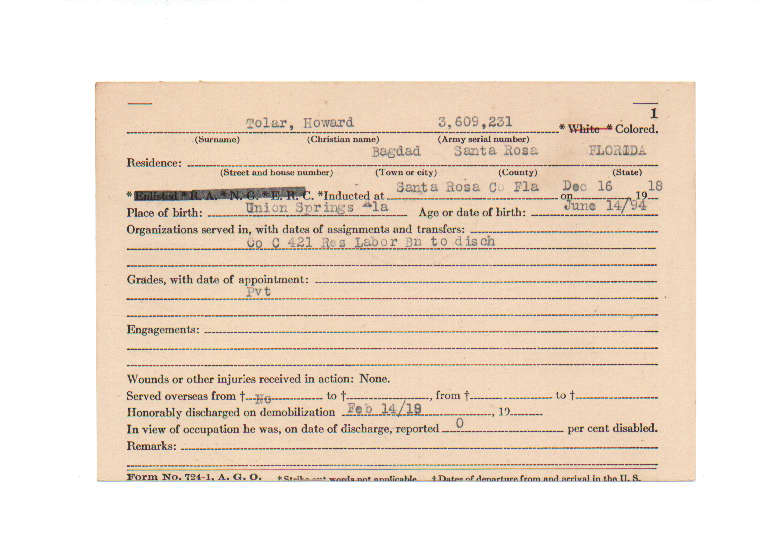 1
Tolar, Howard 3,609,231 * White * Colored.
(Surname) (Christian name) (Army serial number)
Bagdad Santa Rosa FLORIDA
Residence:
(Street and house number) (Town or city) (County) (State)
Santa Rosa Co Fla Dec 16 18
* Enlisted * R. A. * N. G. * E. R. C. *Inducted at on , 19
Union Springs Ala June 14/94
Place of birth: Age or date of birth:
Organizations served in, with dates of assignments and transfers:
Co C 421 Res Labor Bn to disch
Grades, with date of appointment:
Pvt
Engagements:
Wounds or other injuries received in action: None.
Served overseas from † No to †, from † to †
Honorably discharged on demobilization Feb 14/19, 19
In view of occupation he was, on date of discharge, reported 0 per cent disabled.
Remarks:
Form No. 724-1, A. G. O. *Strike out words not applicable. † Dates of departure from and arrival in the U. S.